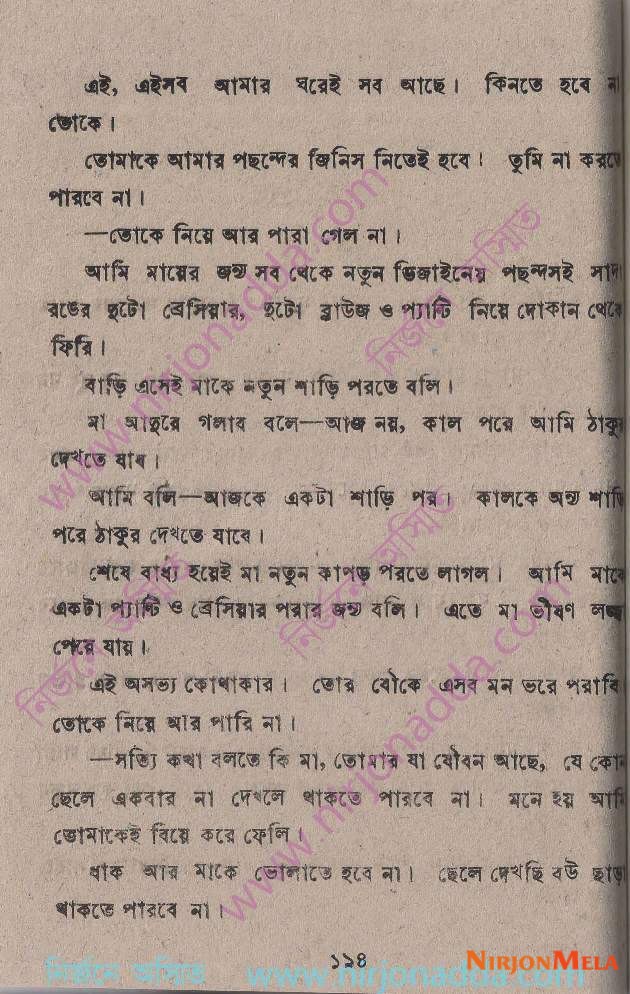 এই, এইসব আমার ঘরেই সব আছে। কিনতে হবে না
তোকে।
তোমাকে আমার পছন্দের জিনিস নিতেই হবে। তুমি না করতে
পারবে না।
—তোকে নিয়ে আর পারা গেল না।
আমি মায়ের জন্য সব থেকে নতুন ডিজাইনের পছন্দসই সাদা
রঙের দুটো ব্রেসিয়ার, দুটো ব্লাউজ ও প্যান্টি নিয়ে দোকান থেকে
ফিরি।
বাড়ি এসেই মাকে নতুন শাড়ি পরতে বলি।
মা আদুরে গলায় বলে—আজ নয়, কাল পরে আমি ঠাকুর
দেখতে যাব।
আমি বলি—আজকে একটা শাড়ি পর। কালকে অন্য শাড়ি
পরে ঠাকুর দেখতে যাবে।
শেষে বাধ্য হয়েই মা নতুন কাপড় পরতে লাগল। আমি মাকে
একটা প্যান্টি ও ব্রেসিয়ার পরার জন্য বলি। এতে মা ভীষণ লজ্জা
পেয়ে যায়।
এই অসভ্য কোথাকার। তোর বৌকে এসব মন ভরে পরাবি
তোকে নিয়ে আর পারি না।
—সত্যি কথা বলতে কি মা, তোমার যা যৌবন আছে, যে কোন
ছেলে একবার না দেখলে থাকতে পারবে না। মনে হয় আমি
তোমাকেই বিয়ে করে ফেলি।
থাক আর মাকে ভোলাতে হবে না। ছেলে দেখছি বউ ছাড়া
থাকতে পারবে না।
১২৪
NIRJONMELA
নির্জনে অস্মিত www.nirjonadda.com
www.nirjonadda.com
নির্জনে অস্মিত
নির্জনে অস্মিত
নির্জনে অস্মিত
www.nirjonadda.com